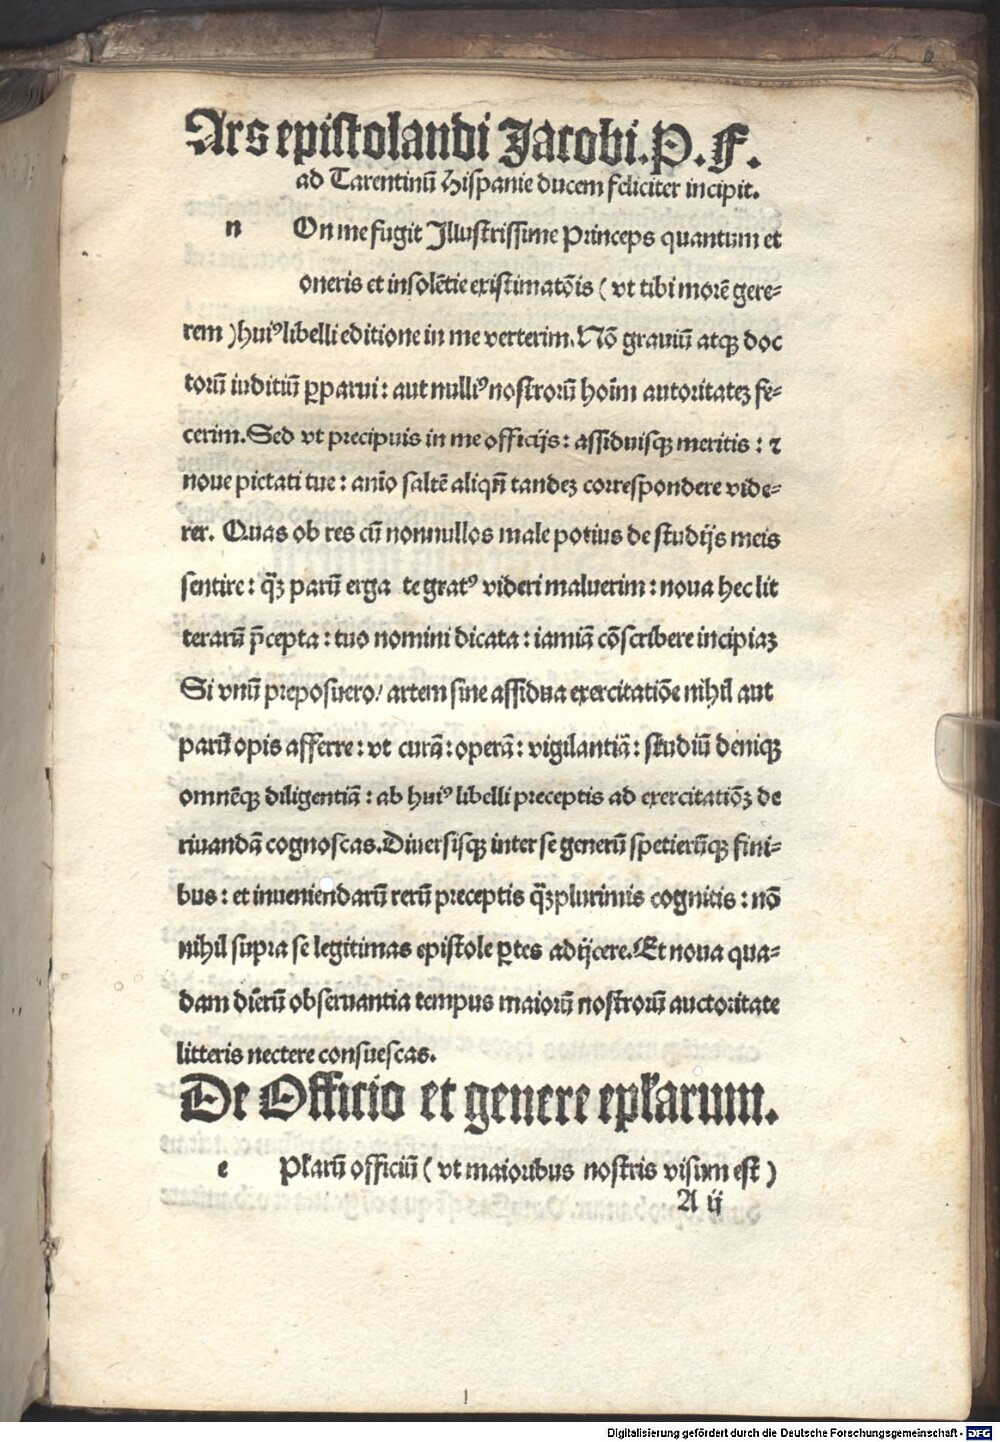 Ars epistolandi Jacobi. P. F.
ad Tarentinū Hispanie ducem feliciter incipit.
n On me fugit Illustrissime Princeps quantum et
oneris et insolētie existimatōis ( vt tibi morē gere-
rem ) huiꝰ libelli editione in me verterim. Nō grauiū atqꝫ doc
torū iuditiū ꝑparui: aut nulliꝰ nostrorū hoīm autoritateꝫ fe-
cerim. Sed vt precipuis in me officijs: assiduisqꝫ meritis: ⁊
noue pietati tue: anīo saltē aliqn̄ tandeꝫ correspondere vide-
rer. Quas ob res cū nonnullos male potius de studijs meis
sentire: qꝫ̄ parū erga te gratꝰ videri maluerim: noua hec lit
terarū p̄cepta: tuo nomini dicata: iamiā cōscribere incipiaꝫ
Si vnū preposuero/ artem sine assidua exercitatiōe nihil aut
parū opis afferre: vt curā: operā: vigilantiā: studiū deniqꝫ
omnēqꝫ diligentiā: ab huiꝰ libelli preceptis ad exercitatiōꝫ de
riuandā cognoscas. Diuersisqꝫ inter se generū spetierūqꝫ fini-
bus: et inueniendarū rerū preceptis qꝫ̄plurimis cognitis: nō
nihil supra se legitimas epistole ꝑtes adijcere. Et noua qua-
dam diērū obseruantia tempus maiorū nostrorū auctoritate
litteris nectere consuescas.
De Officio et genere epl̄arum.
e Pl̄arū officiū ( vt maioribus nostris visum est )
A ij
Digitalisierung gefördert durch die Deutsche Forschungsgemeinschaft - DFG